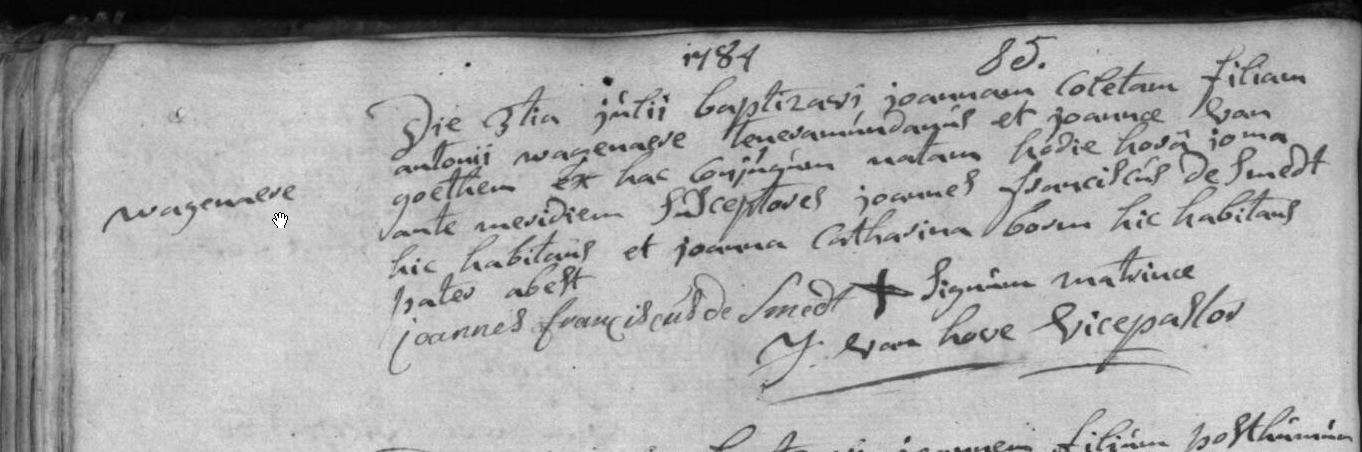 1784 85.
Die 3tia julii baptizavi joannam Coletam filiam
antonii wagenaere Teneramundanus et joannæ van
goethem ex hac Conjugum natam hodie horâ
ante meridiem Susceptores joannes franciscus De Smedt
hic habitans et joanna Catharina born hic habitans
wagenaere
pater abest
joannes franciscus de Smedt + Signum matrinæ
J. van hove vicepastor
joannem filium posthumum